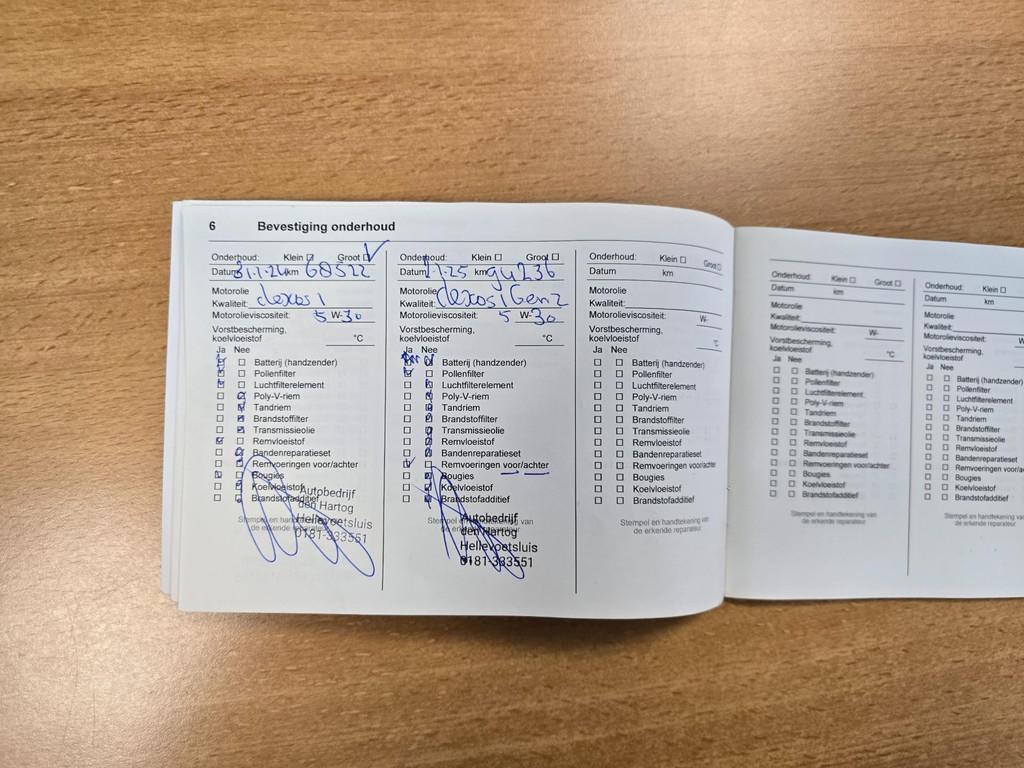 6 Bevestiging onderhoud
Onderhoud: Klein Groot
Datum 31.1.24 km 68522
Motorolie
Kwaliteit: dexos 1
Motorolieviscositeit: 5 W-30
Vorstbescherming,
koelvloeistof °C
Ja Nee
Batterij (handzender)
Pollenfilter
Luchtfilterelement
Poly-V-riem
Tandriem
Brandstoffilter
Transmissieolie
Remvloeistof
Bandenreparatieset
Remvoeringen voor/achter
Bougies
Koelvloeistof
Brandstofadditief
Stempel en handtekening van
de erkende reparateur
Autobedrijf
den Hartog
Hellevoetsluis
0181-333551
Onderhoud: Klein Groot
Datum 2-1-25 km 94236
Motorolie
Kwaliteit: dexos 1 Gen2
Motorolieviscositeit: 5 W-30
Vorstbescherming,
koelvloeistof °C
Ja Nee
Batterij (handzender)
Pollenfilter
Luchtfilterelement
Poly-V-riem
Tandriem
Brandstoffilter
Transmissieolie
Remvloeistof
Bandenreparatieset
Remvoeringen voor/achter
Bougies
Koelvloeistof
Brandstofadditief
Stempel en handtekening van
de erkende reparateur
Autobedrijf
den Hartog
Hellevoetsluis
0181-333551
Onderhoud: Klein Groot
Datum km
Motorolie
Kwaliteit:
Motorolieviscositeit: W-
Vorstbescherming,
koelvloeistof °C
Ja Nee
Batterij (handzender)
Pollenfilter
Luchtfilterelement
Poly-V-riem
Tandriem
Brandstoffilter
Transmissieolie
Remvloeistof
Bandenreparatieset
Remvoeringen voor/achter
Bougies
Koelvloeistof
Brandstofadditief
Stempel en handtekening van
de erkende reparateur
Onderhoud: Klein Groot
Datum km
Motorolie
Kwaliteit:
Motorolieviscositeit: W-
Vorstbescherming,
koelvloeistof °C
Ja Nee
Batterij (handzender)
Pollenfilter
Luchtfilterelement
Poly-V-riem
Tandriem
Brandstoffilter
Transmissieolie
Remvloeistof
Bandenreparatieset
Remvoeringen voor/achter
Bougies
Koelvloeistof
Brandstofadditief
Stempel en handtekening van
de erkende reparateur
Onderhoud: Klein
Datum km
Motorolie
Kwaliteit:
Motorolieviscositeit: W
Vorstbescherming,
koelvloeistof
Ja Nee
Batterij (handzender)
Pollenfilter
Luchtfilterelement
Poly-V-riem
Tandriem
Brandstoffilter
Transmissieolie
Remvloeistof
Bandenreparatieset
Remvoeringen voor/ac
Bougies
Koelvloeistof
Brandstofadditief
Stempel en handtekening
de erkende reparateur